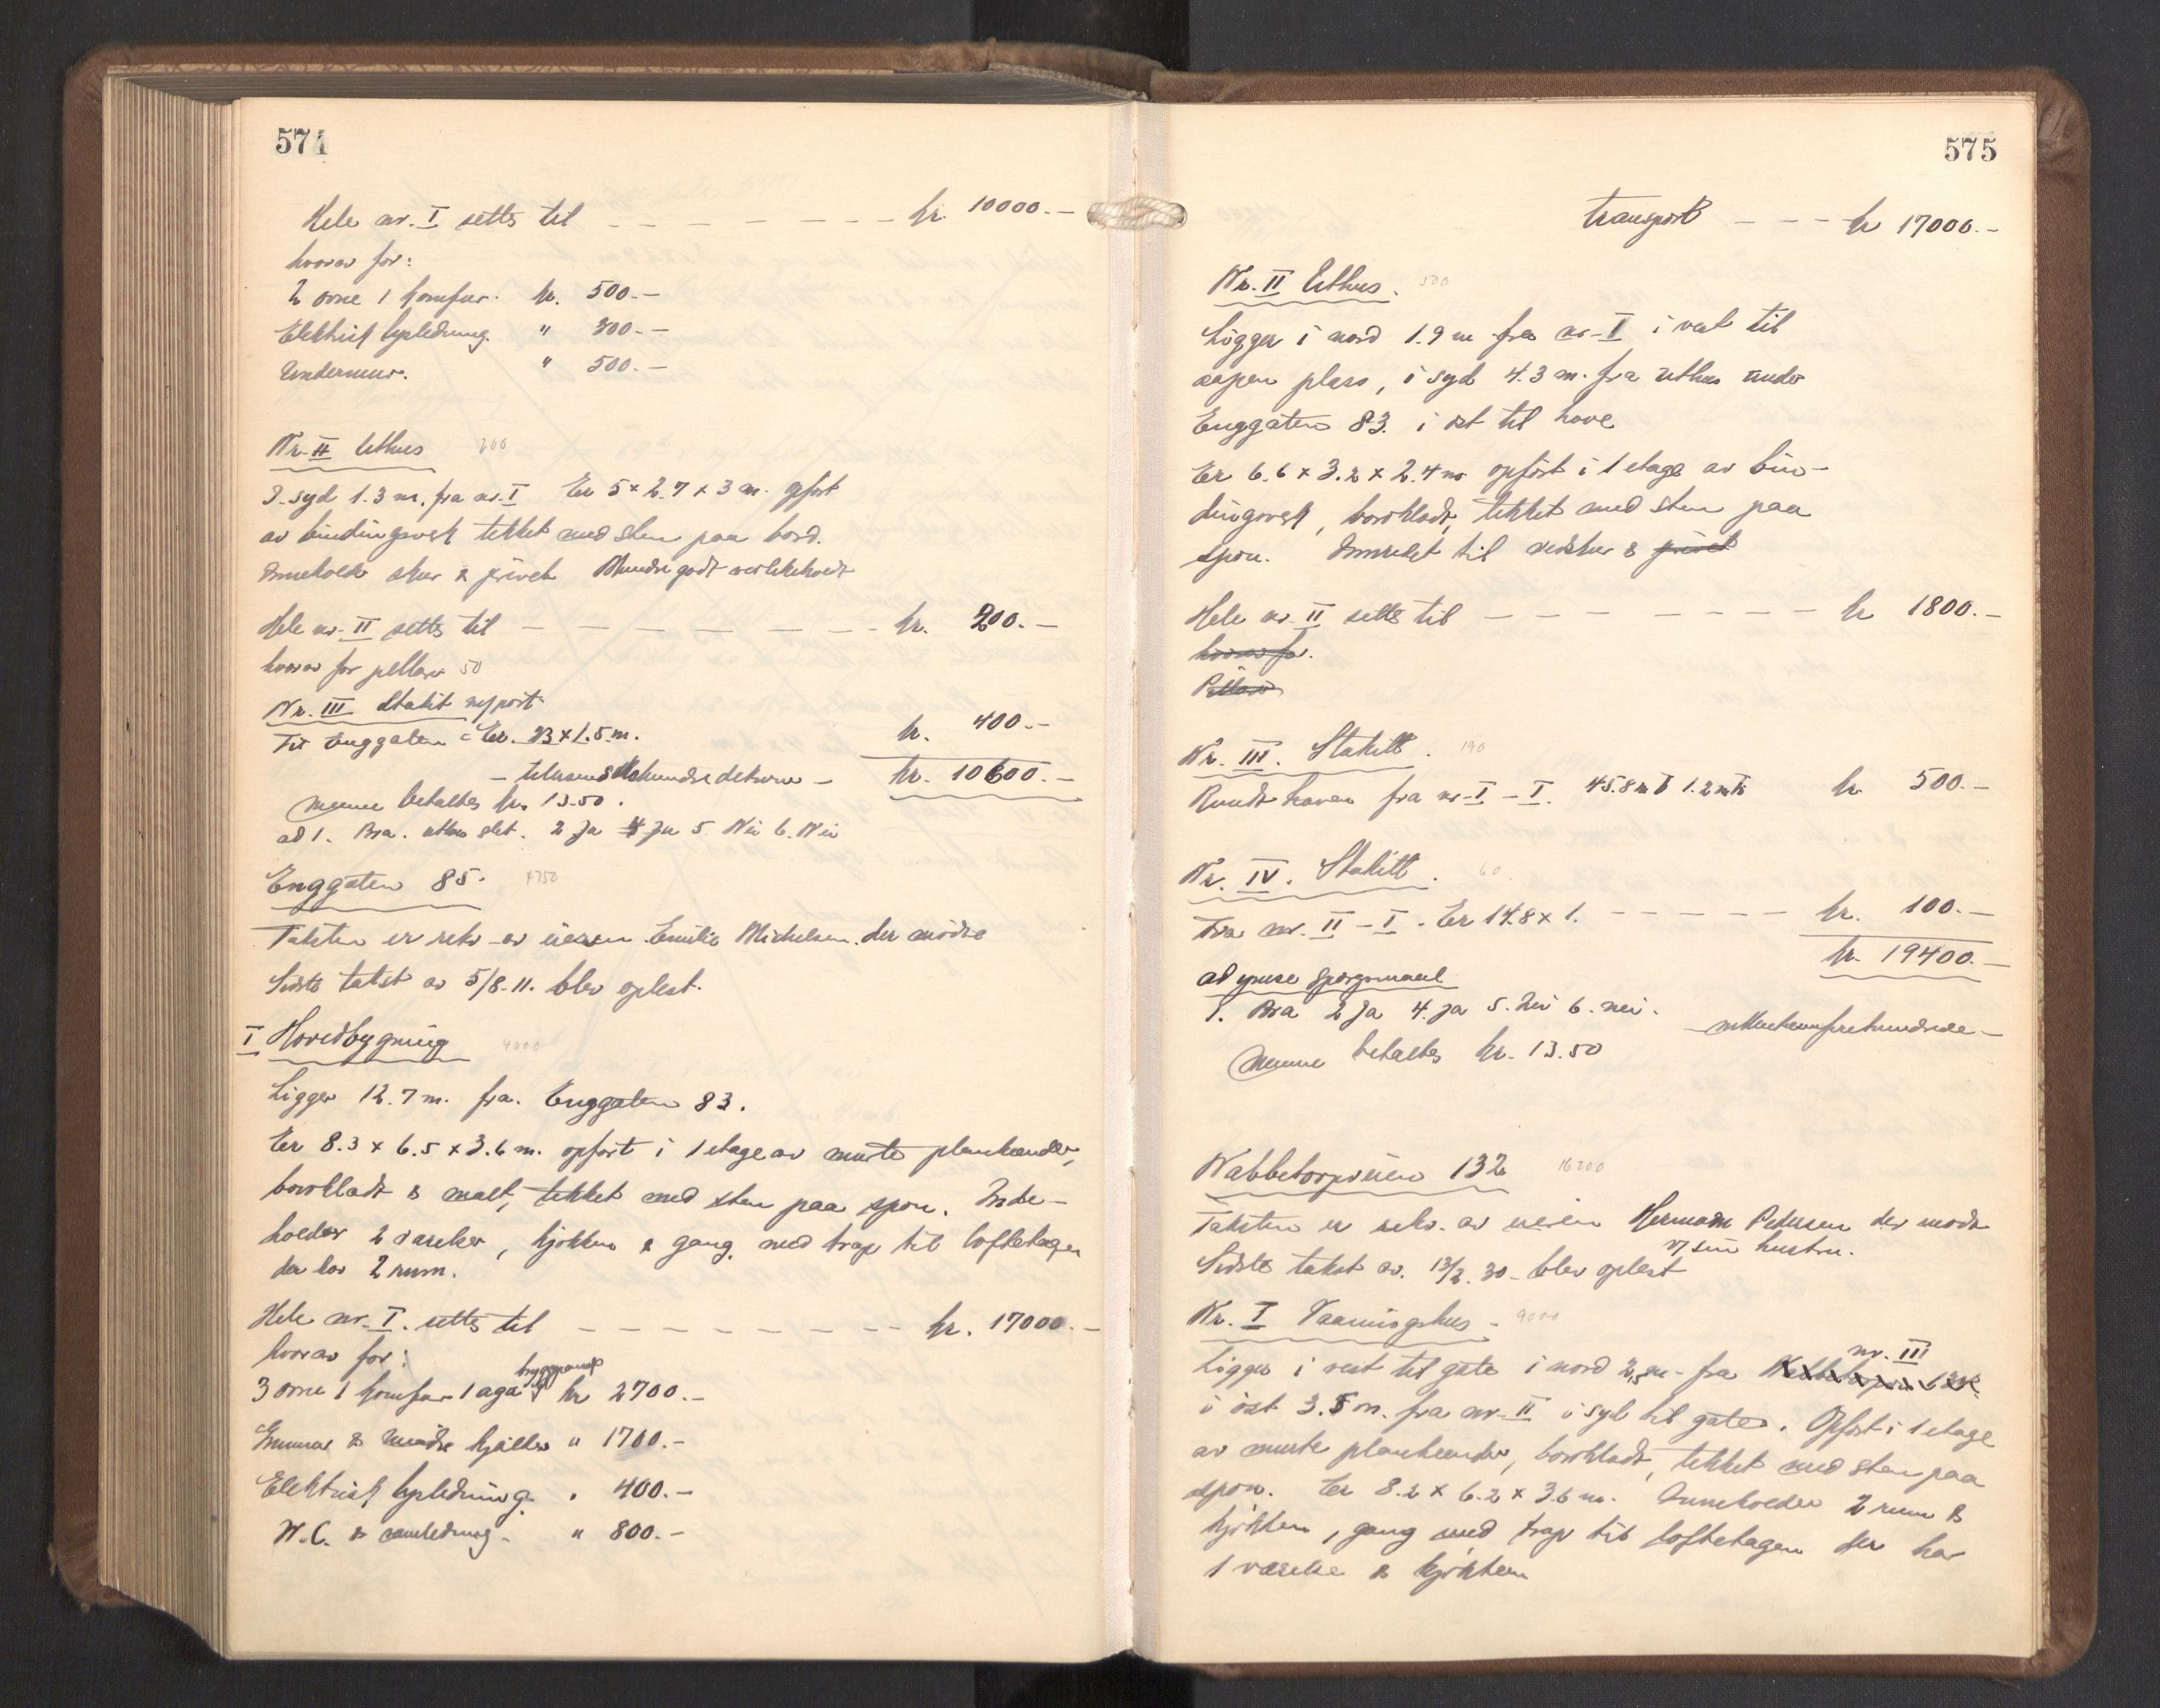 574
Hele nr. I settes til — — — — — — — kr. 10000.—
hvorav for:
2 ovne 1 komfur. kr. 500.—
Elektrisk lysledning. " 300.—
Undermur. " 500.—
Nr. II Uthus 200
I syd 1.3 m. fra nr. I Er 5 x 2.7 x 3 m. opført
av bindingsverk tekket med sten paa bord.
Inneholder skur & privet Mindre godt vedlikeholdt
Hele nr. II settes til — — — — — — — kr. 200.—
hvorav for pillarer 50
Nr. III Stakit nyført
Til Enggaten Er. 23 x 1.5 m. kr. 400.—
— titusensekshundredekroner — kr. 10600.—
Mønne betaltes kr. 13.50.
ad 1. Bra. uthus slet. 2 Ja 4 Ja 5. Nei 6. Nei
Enggaten 85. 4750
Taksten er rekv. av eieren Emilie Mickelsen der mødte
Sidste takst av 5/8-11. blev oplest.
I Hovedbygning 4000
Ligger 12.7 m. fra. Enggaten 83.
Er 8.3 x 6.5 x 3.6 m. opført i 1 etage av murte plankeender,
bordklædt & malt, tekket med sten paa spon. Inde-
holder 2 værelser, kjøkken & gang med trap til loftetagen
der har 2 rum.
Hele nr. I. settes til — — — — — — — kr. 17000.—
hvorav for:
3 ovne 1 komfur 1 aga bryggepanne kr 2700.—
Grunnmur & murte kjeller " 1700.—
Elektrisk lysledning. " 400.—
W.C. & vannledning. " 800.—
575
Transport — — — kr 17000.—
Nr. II Uthus. 500
Ligger i nord 1.9 m fra nr. I i vest til
aapen plass, i syd 4.3 m. fra uthus under
Enggaten 83. i øst til have
Er 6.6 x 3.2 x 2.4 m opført i 1 etage av bin-
dingsverk, bordklædt, tekket med sten paa
spon. Innredet til vedskur & privet
Hele nr. II settes til — — — — — — — kr 1800.—
hvorav for.
Pillarer
Nr. III. Stakitt. 190
Rundt haven fra nr. I – I. 45.8 m l 1.2 m h kr. 500.—
Nr. IV. Stakitt. 60
Fra nr. II – I. Er 14.8 x 1. — — — — — kr. 100.—
kr. 19400.—
ad yrese spørgsmaal
1. Bra 2 Ja 4. ja 5. Nei 6. nei. — nittentusenfirehundrede —
Mønne betaltes kr. 13.50
Nabbetorpveien 132 16200
Taksten er rekv. av eieren Hermann Pedersen der mødte
v/ sin hustru.
Sidste takst av. 13/2. 30 - blev oplest
Nr. I Vaaningshus. 9000
nr. III
Ligger i vest til gate i nord 2,5 m. fra Nabbetorpveien 132
i øst 3.5 m. fra nr. II i syd til gate. Opført i 1 etage
av murte plankeender, bordklædt, tekket med sten paa
spon. Er 8.2 x 6.2 x 3.6 m. Inneholder 2 rum &
kjøkken, gang med trap til loftetagen der har
1 værelse & kjøkken